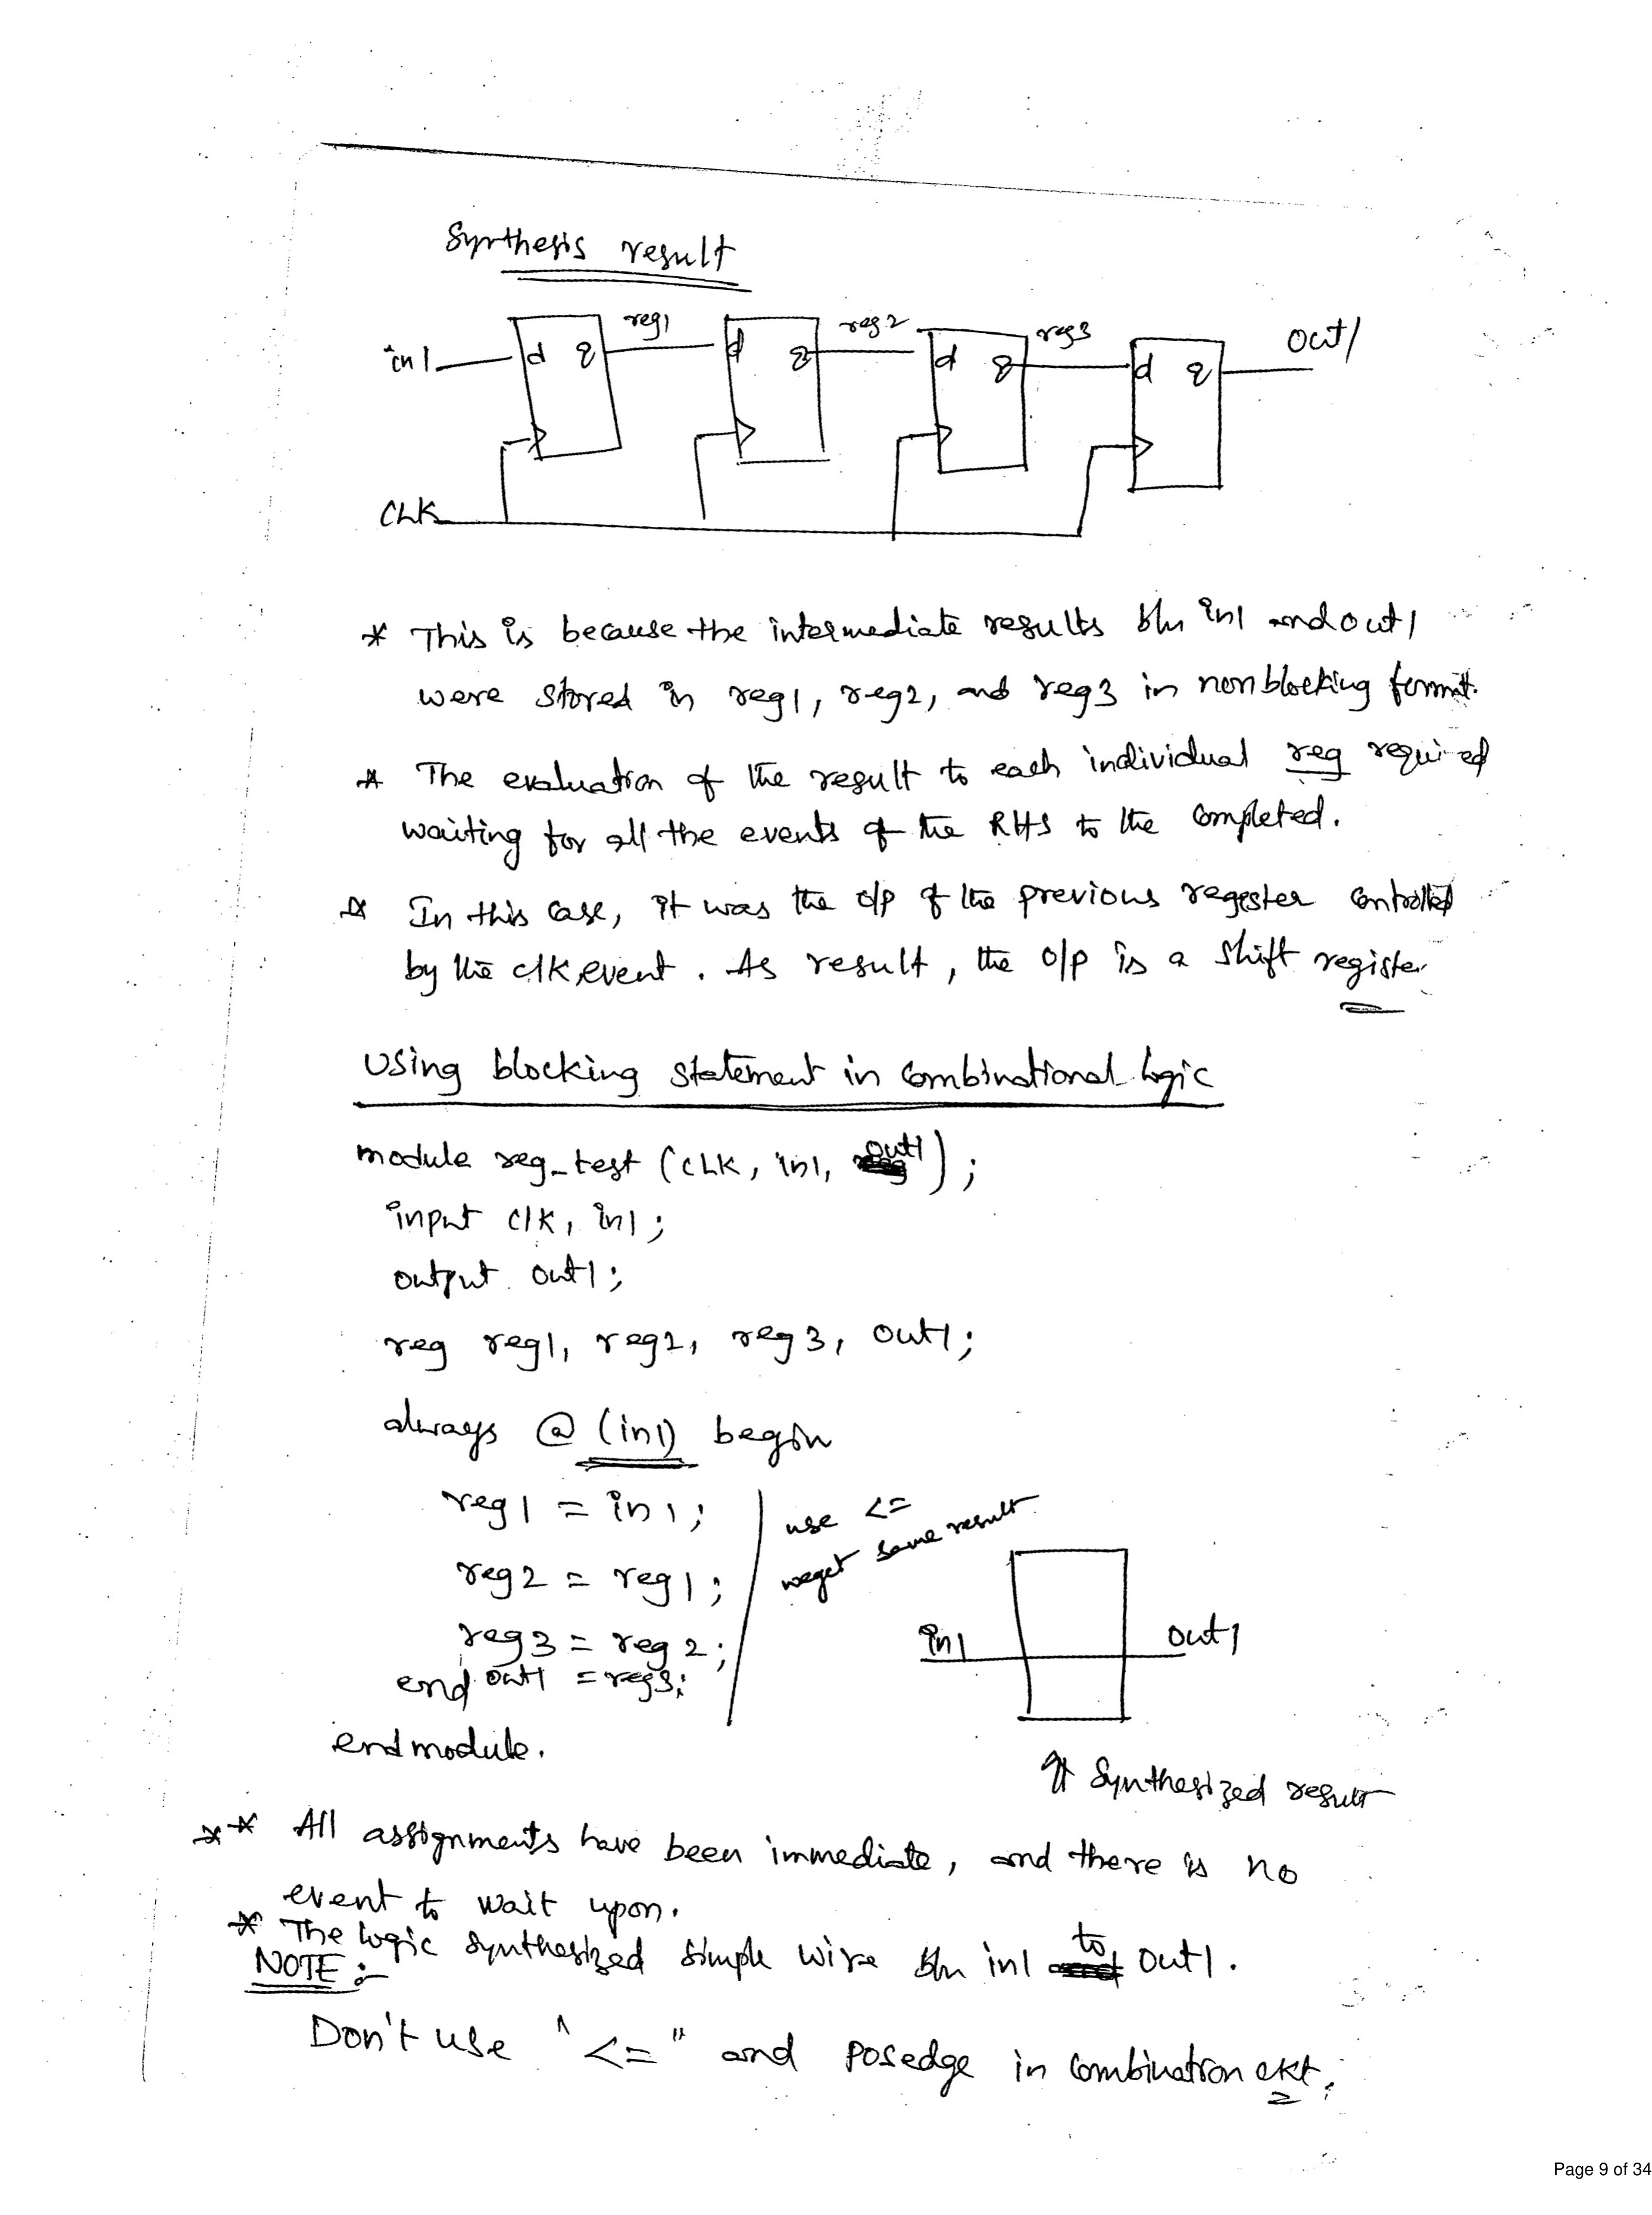 Synthesis result
in1 d q reg1 d q reg2 d q reg3 d q out1
CLK
* This is because the intermediate results b/w in1 and out1
were stored in reg1, reg2, and reg3 in nonblocking format.
* The evaluation of the result to each individual reg required
waiting for all the events of the RHS to the completed.
* In this case, it was the o/p of the previous regester controlled
by the clk event. As result, the o/p is a shift register
Using blocking statement in combinational logic
module reg_test (CLK, in1, out1);
input clk, in1;
output out1;
reg reg1, reg2, reg3, out1;
always @ (in1) begin
reg1 = in1; use <=
reg2 = reg1; we get same result.
reg3 = reg2; in1 out1
end out1 = reg3;
endmodule.
⇑ Synthesized result
** All assignments have been immediate, and there is no
event to wait upon.
* The logic synthesized simple wire b/w in1 to out1.
NOTE :-
Don't use "<=" and posedge in combination ckt.
Page 9 of 34